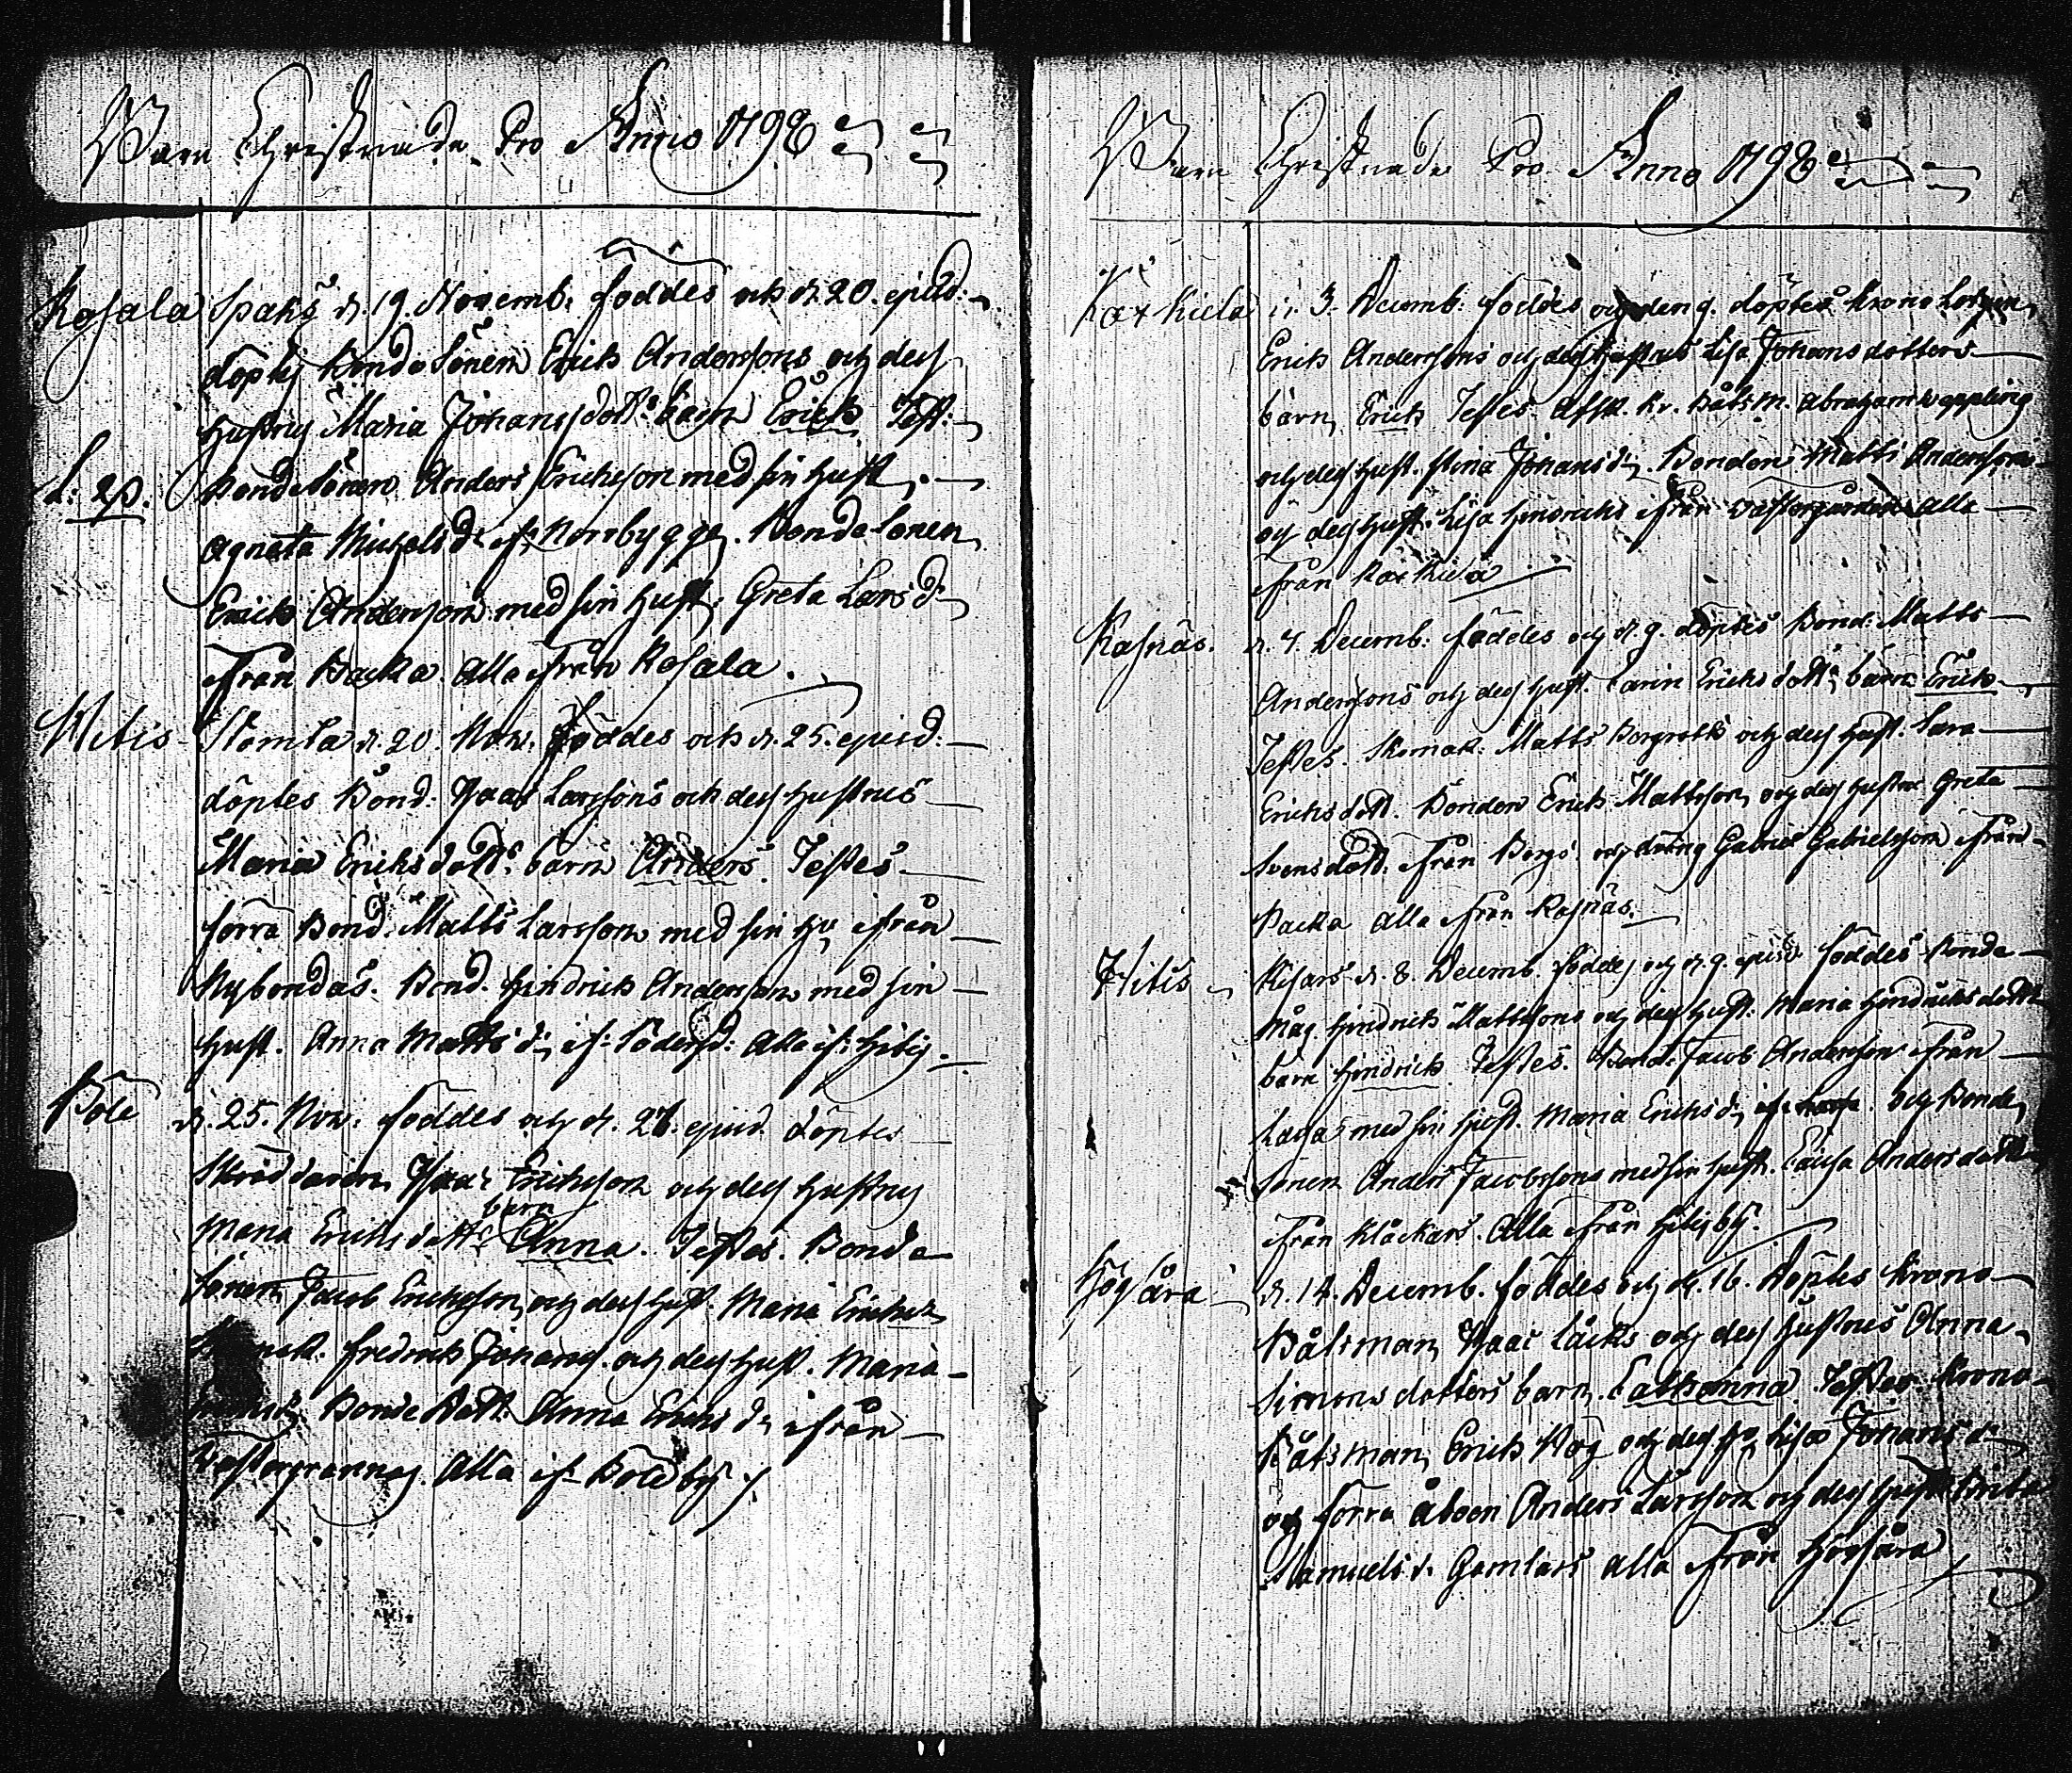 Barn Christnade Pro Anno 1798
Rosala Spaks d. 19. Novemb: föddes och d. 20. ejusd:
döptes Bonda Sonen Erich Anderssons och dess
hustrus Maria Johansdotts barn Erich Test:
L: 2p. Bondesonen Anders Erichsson med sin hust.
Agneta Michels d: if: Norrbygge. Bonde Sonen
Erich Andersson med sin hust: Greta Lars d:
ifrån Backa. Alla ifrån Rosala.
Hitis Stomla d. 20. Nov: föddes och d. 25. ejusd.
döptes Bond: Isaac Larssons och dess hustrus
Maria Erichsdotts barn Anders. Testes.
förra Bond. Matts Larsson med sin hu ifrån
Nybondas. Bond. Hindrich Andersson med sin
hust. Anna Matts d: if: Söderg: Alla if: Hitis.
Böle d. 25. Nov: föddes och d. 27. ejusd döptes
Skräddaren Isaac Erichsson och dess hustrus
barn
Maria Erichsdotts Anna. Testes. Bonde
Sonen Jacob Erichsson och dess hust. Maria Erichs d:
Fredrich Johanss. och dess hust. Maria
Bonde Dott. Anna Erichs d: ifrån
Västergrannas. Alla if: Böle by
Barn Christnade Pro Anno 1798
d. 3. Decemb: föddes och den 9. döptes Krono Lotsen
Erich Anderssons och dess hustrus Lisa Johansdotters
barn, Erich Testes. Afsk. Kr. Båtsm. Abraham Wappling
och dess hust. Stina Johans d: Bonden Matts Andersson
och dess hust. Lisa Hindrichs ifrån Västergården alla
ifrån
Kasnäs. d. 7. Decemb: föddes och d. 9. döptes Bond: Matts
Anderssons och dess hust. Carin Erichsdotts barn Erich
Testes. Matts och dess hust. Sara
Erichsdott. Bonden Erich Mattsson och dess hustru Greta
Svensdott. ifrån och dräng Gabriel Gabrielsson ifrån
Backa alla ifrån Kasnäs.
Hitis Klifars d. 8. Decemb. föddes och d. 9. ejusd. föddes Bonde
Måg Hindrich Mattssons och dess hust. Maria Hindrichsdotts
barn Hindrich Testes. Bond: Jacob Andersson ifrån
med sin hust. Maria Erichs d: och Bonde
Sonen Anders Jacobsson med sin hust. Caisa Andersdott
ifrån Klåckars. Alla ifrån Hitis by.
Högsåra d. 14. Decemb. föddes och d. 16. Döptes Krono
Båtsman Isaac Läcks och dess hustrus Anna
Simonsdotters barn. Catharina. Testes. Krono
Båtsman Erich Hög och dess hu Lisa Johans d:
och förra åboen Anders Larsson och dess hust. Brita
Samuels d. Gamlars alla ifrån Högsåra